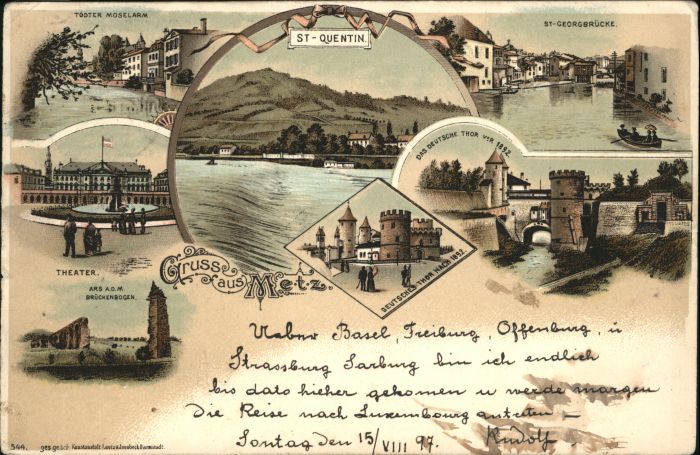 TODTER MOSELARM.
ST-QUENTIN.
ST-GEORGBRÜCKE.
DAS DEUTSCHE THOR VOR 1892.
THEATER.
ARS A.D.M.
BRÜCKENBOGEN.
Gruss
aus Metz.
DEUTSCHES THOR NACH 1892.
Ueber Basel, Freiburg, Offenburg, u
Strassburg Sarburg bin ich endlich
bis dato hieher gekomen u werde margen
Die Reise nach Luxembourg antreten –
Sontag den 15/VIII 97. Rudolf
544. ges. gesch. Kunstanstalt Lautz & Isenbeck Darmstadt.